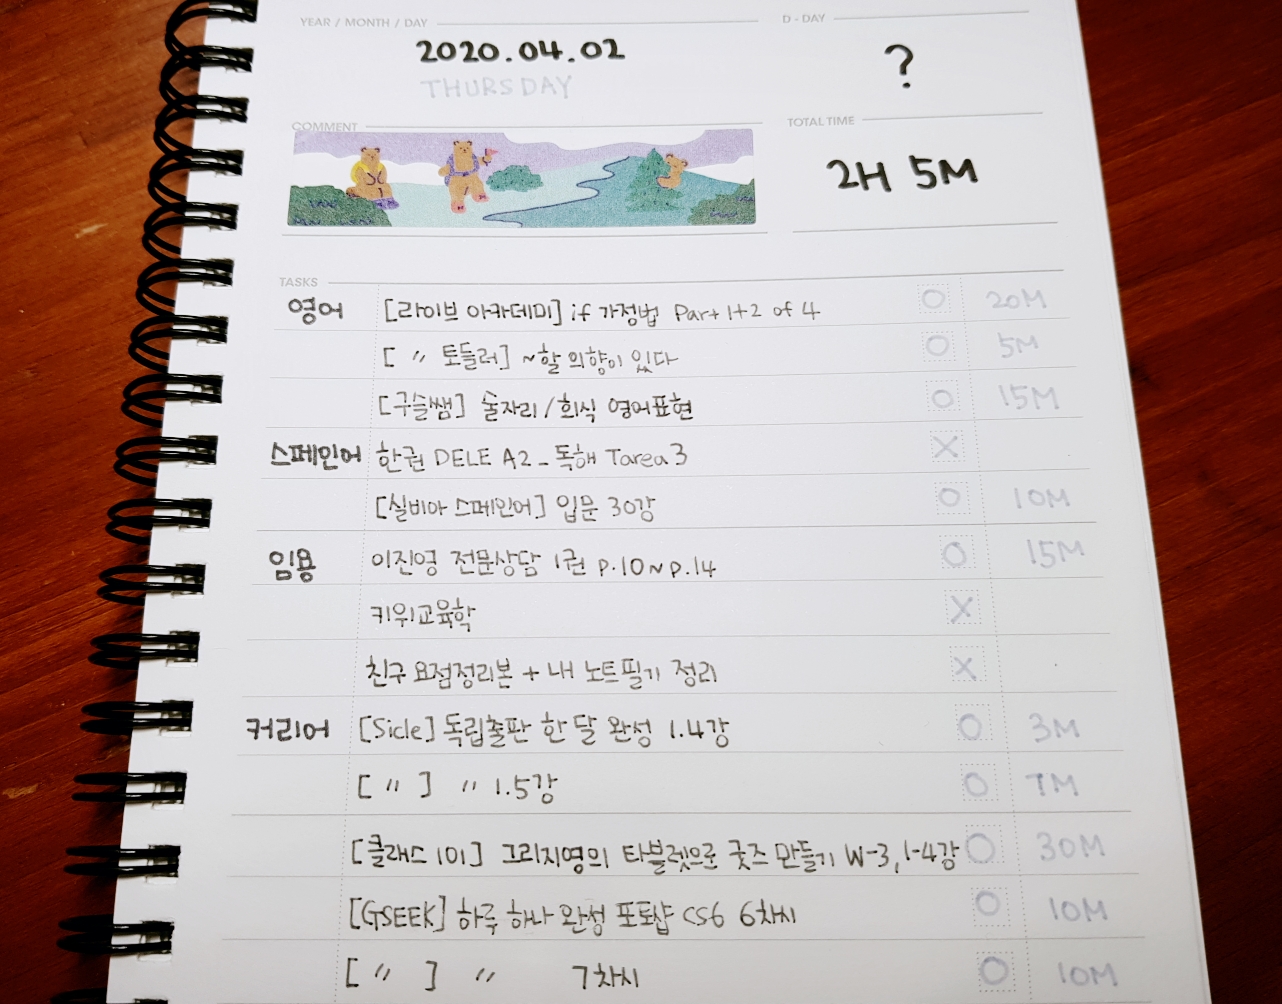 YEAR / MONTH / DAY
2020.04.02
THURSDAY
D - DAY
?
COMMENT
TOTAL TIME
2H 5M
TASKS
영어 [라이브 아카데미] if 가정법 Part 1+2 of 4 O 20M
[ 〃 토들러] ~할 의향이 있다 O 5M
[구슬쌤] 술자리/회식 영어표현 O 15M
스페인어 한권 DELE A2_독해 Tarea 3 X
[실비아 스페인어] 입문 30강 O 10M
임용 이진영 전문상담 1권 p.10~p.14 O 15M
키위교육학 X
친구 요점정리본 + 내 노트필기 정리 X
커리어 [Sicle] 독립출판 한 달 완성 1.4강 O 3M
[ 〃 ] 〃 1.5강 O 7M
[클래스 101] 그리지영의 타블렛으로 굿즈 만들기 W-3, 1-4강 O 30M
[GSEEK] 하루 하나 완성 포토샵 CS6 6차시 O 10M
[ 〃 ] 〃 7차시 O 10M